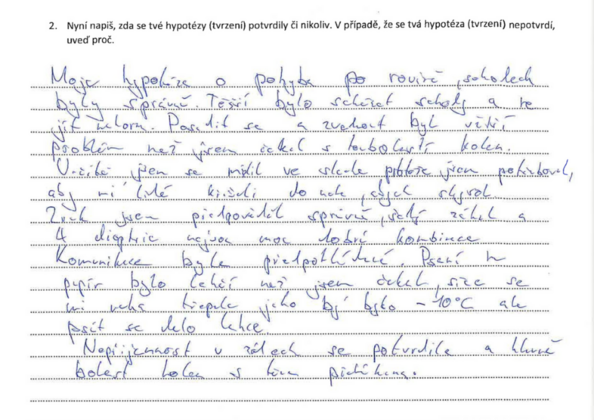 2. Nyní napiš, zda se tvé hypotézy (tvrzení) potvrdily či nikoliv. V případě, že se tvá hypotéza (tvrzení) nepotvrdí,
uveď proč.
Moje hypotéza o pohybu po rovině, schodech
byly správné. Těžší bylo scházet schody a ne
jít nahoru. Posadit se a zvednout byl větší
problém než jsem čekal s tloubolestí kolen.
jsem se mýlil ve sluchu protože jsem potřeboval,
aby mi lidé křičeli do ucha, abych slyšel
Zrak jsem předpověděl správně, šedý zákal a
4 dioptrie nejsou moc dobrá kombinace
Komunikace byla předpokládaná. Psaní na
papír bylo lehčí než jsem čekal, sice se
mi ruka třepala jako by bylo -10°C ale
psát se dalo lehce.
Nepříjemnost v zádech se potvrdila a hlavně
bolest kolen s tím